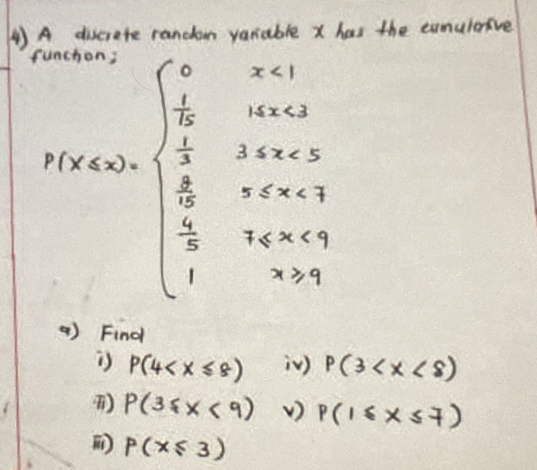 4) A discrete random variable x has the cumulative
function;
0 x < 1
1/15 1 ≤ x < 3
1/3 3 ≤ x < 5
P(X ≤ x) =
8/15 5 ≤ x < 7
4/5 7 ≤ x < 9
1 x ≥ 9
a) Find
i) P(4 < X ≤ 8) iv) P(3 < X < 8)
ii) P(3 ≤ X < 9) v) P(1 ≤ X ≤ 7)
iii) P(X ≤ 3)